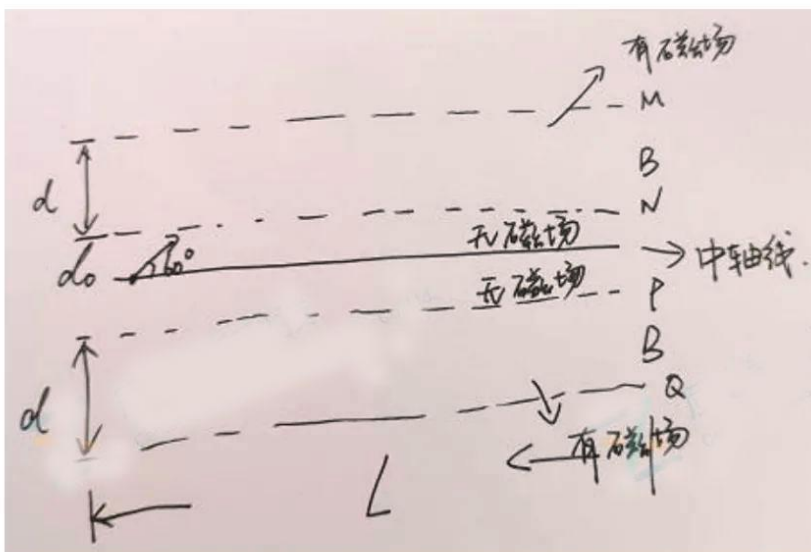 有磁场
M
d
B
N
无磁场
d₀
60°
中轴线.
无磁场
P
d
B
Q
有磁场
L